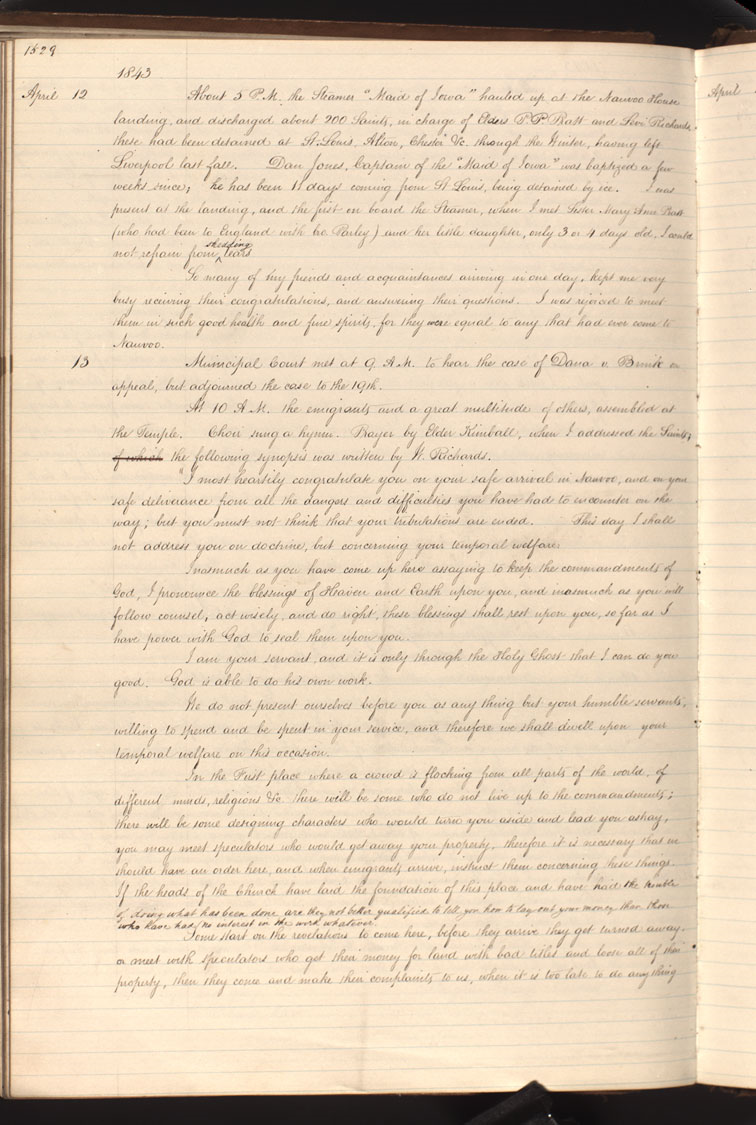 1529
1843
April 12 About 5 P.M. the Steamer "Maid of Iowa" hauled up at the Nauvoo House April
landing, and discharged about 200 Saints, in charge of Elders P. P. Pratt and Levi Richards,
these had been detained at St. Louis, Alton, Chester &c. through the Winter, having left
Liverpool last fall. Dan Jones, Captain of the "Maid of Iowa" was baptized a few
weeks since; he has been 11 days coming from St Louis, being detained by ice. I was
present at the landing, and the first on board the Steamer, when I met Sister Mary Ann Pratt
(who had been to England with bro. Parley) and her little daughter, only 3 or 4 days old. I could
not refrain from shedding tears.
So many of my friends and acquaintances arriving in one day, kept me very
busy receiving their congratulations, and answering their questions. I was rejoiced to meet
them in such good health and fine spirits, for they were equal to any that had ever come to
Nauvoo.
13 Municipal Court met at 9 A.M. to hear the case of Dana v. Brink on
appeal, but adjourned the case to the 19th.
At 10 A.M. the emigrants and a great multitude of others, assembled at
the Temple. Choir sung a hymn. Prayer by Elder Kimball, when I addressed the Saints,
of which the following synopsis was written by W. Richards.
"I most heartily congratulate you on your safe arrival in Nauvoo, and on your
safe deliverance from all the dangers and difficulties you have had to encounter on the
way; but you must not think that your tribulations are ended. This day I shall
not address you on doctrine, but concerning your temporal welfare.
Inasmuch as you have come up here assaying to keep the commandments of
God, I pronounce the blessings of Heaven and Earth upon you, and inasmuch as you will
follow counsel, act wisely, and do right, these blessings shall rest upon you, so far as I
have power with God to seal them upon you.
I am your servant, and it is only through the Holy Ghost that I can do you
good. God is able to do his own work.
We do not present ourselves before you as any thing but your humble servants,
willing to spend and be spent in your service, and therefore we shall dwell upon your
temporal welfare on this occasion.
In the First place where a crowd is flocking from all parts of the world, of
different minds, religions &c. there will be some who do not live up to the commandments;
there will be some designing characters who would turn you aside and lead you astray,
you may meet speculators who would get away your property, therefore it is necessary that we
should have an order here, and when emigrants arrive, instruct them concerning these things.
If the heads of the Church have laid the foundation of this place and have had the trouble
of doing what has been done, are they not better qualified to tell you how to lay out your money than those
who have had no interest in the work whatever.
Some start on the revelations to come here, before they arrive they get turned away
or meet with speculators who get their money for land with bad titles and loose all of their
property, then they come and make their complaints to us, when it is too late to do any thing